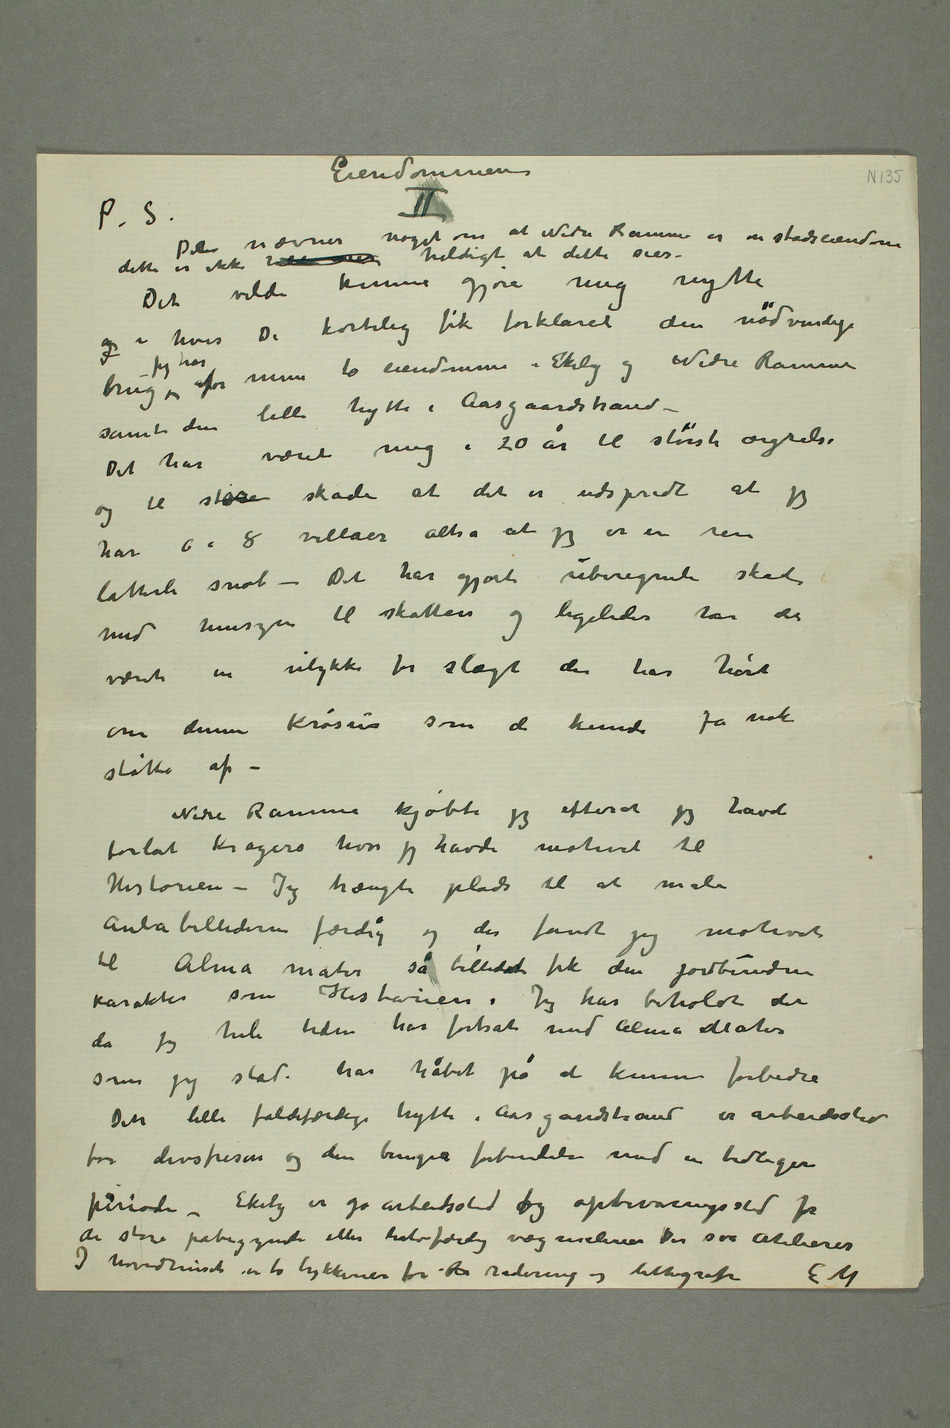 Eiendommene
N 135
II
P. S.
De nævner noget om at Nedre Ramme er en stadseiendom
dette er ikke heldigt at dette sies –
Det vilde kunne gjøre mig nytte
og i hvis De kortelig fik forklaret den nödvendige
jeg har
brug for mine to eiendomme i Ekely og Nedre Ramme
samt den lille hytte i Aasgaardstrand –
Det har været mig i 20 år til störste ærgrelse
og til store skade at det er udspredt at jeg
har 6 a 8 villaer altså at jeg er en ren
latterli snob – Det har gjort uberegneli skade
med hensyn til skatten og ligeledes har det
været en ulykke for slægt der har hört
om denne Krösus som de kunde få nok
støtte af –
Nedre Ramme kjøbte jeg efterat jeg havde
forlat Kragerø hvor jeg havde motivet til
Historien – Jeg trængte plads til at male
Aulabillederne færdig og der fandt jeg motivet
til Alma mater så billedet fik den jordbundne
karakter som Historien. Jeg har beholdt det
da jeg hele tiden har fortsat med Alma Mater
som jeg stad. har håbet på at kunne forbedre
Den lille faldefærdige hytte i Aasgaardstrand er arbeidssted
for livsfrisen og den bringer forbindelse med en tidligere
periode – Ekely er jo arbeidssted og opbevaringssted for
de store påbegynte eller halvfærdig vægmalerier Der svære Atelierer
I hovedhuset er to trykkerier for radering og lithografi E M